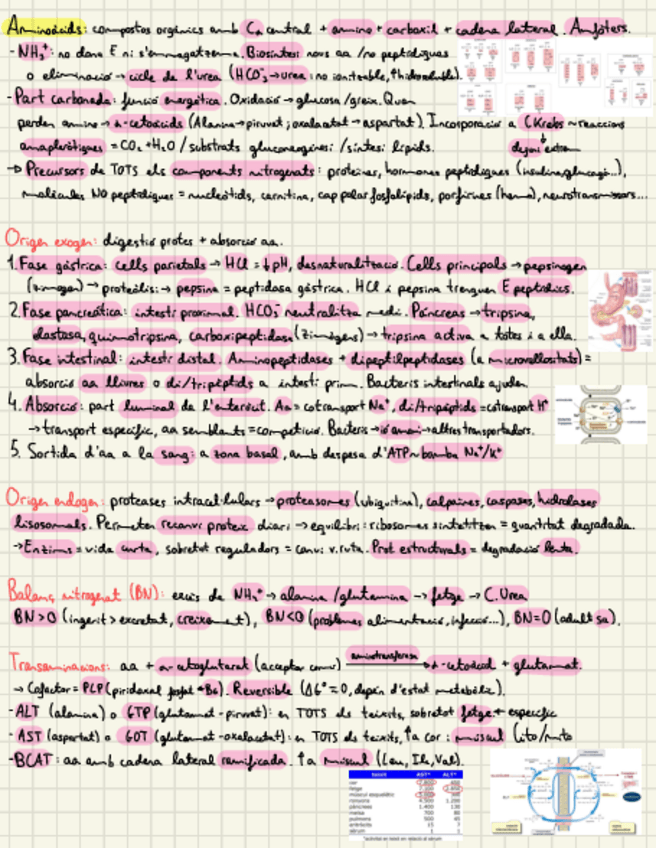 Aminoàcids: compostos orgànics amb Cα central + amino + carboxil + cadena lateral. Amfòters.
- NH₄⁺: no dona E ni s'emmagatzema. Biosíntesi nous aa /no peptídiques
o eliminació → cicle de l'urea (HCO₃⁻→urea: no ionitzable, ↑hidrosoluble).
- Part carbonada: funció energètica. Oxidació → glucosa /greix. Quan
perden amino → α-cetoàcids (Alanina→piruvat; oxalacetat→aspartat). Incorporació a C.Krebs ~ reaccions
anapleròtiques = CO₂ + H₂O / substrats gluconeogènesi / síntesi lípids.
dejuni extrem
→ Precursors de TOTS els components nitrogenats: proteïnes, hormones peptídiques (insulina, glucagó...),
molècules NO peptídiques = nucleòtids, carnitina, cap polar fosfolípids, porfirines (hemo), neurotransmissors...
Origen exogen: digestió protes + absorció aa.
1. Fase gàstrica: cells parietals → HCl = ↓pH, desnaturalització. Cells principals → pepsinogen
(zimogen) → proteòlisi → pepsina = peptidasa gàstrica. HCl i pepsina trenquen E peptídics.
2. Fase pancreàtica: intestí proximal. HCO₃⁻ neutralitza medi. Pàncreas → tripsina,
elastasa, quimotripsina, carboxipeptidasa (zimògens) → tripsina activa a totes i a ella.
3. Fase intestinal: intestí distal. Aminopeptidases + dipeptilpeptidases (a microvellositats) =
absorció aa lliures o di/tripèptids a intestí prim. Bacteris intestinals ajuden.
4. Absorció: part luminal de l'enteròcit. Aa = cotransport Na⁺, di/tripèptids = cotransport H⁺
→ transport específic, aa semblants = competició. Bacteris → → altres transportadors.
5. Sortida d'aa a la sang: a zona basal, amb despesa d'ATP ~ bomba Na⁺/K⁺
Origen endogen: proteases intracel·lulars → proteasomes (ubiquitina), calpaïnes, caspases, hidrolases
lisosomals. Permeten recanvi proteic diari → equilibri: ribosomes sintetitzen = quantitat degradada.
→ Enzims = vida curta, sobretot reguladors = canvi v.ruta. Prot estructurals = degradació lenta.
Balanç nitrogenat (BN): excés de NH₄⁺ → alanina /glutamina → fetge → C.Urea
BN>0 (ingerit > excretat, creixement), BN<0 (problemes alimentació, infecció...), BN=0 (adult sa).
Transaminacions: aa + α-cetoglutarat (acceptor comú) aminotransferasa → α-cetoàcid + glutamat.
→ Cofactor = PLP (piridoxal fosfat ← B6). Reversible (ΔG°'=0, depèn d'estat metabòlic).
- ALT (alanina) o GTP (glutamat-piruvat): en TOTS els teixits, sobretot fetge + específic
- AST (aspartat) o GOT (glutamat-oxalacetat): en TOTS els teixits, ↑a cor i múscul (cito/mito
- BCAT: aa amb cadena lateral ramificada. ↑a múscul (Leu, Ile, Val).
teixit AST* ALT*
cor 7.800 450
fetge 7.100 2.850
múscul esquelètic 5.000 300
ronyons 4.500 1.200
pàncreas 1.400 130
melsa 700 80
pulmons 500 45
eritròcits 15 7
sèrum 1 1